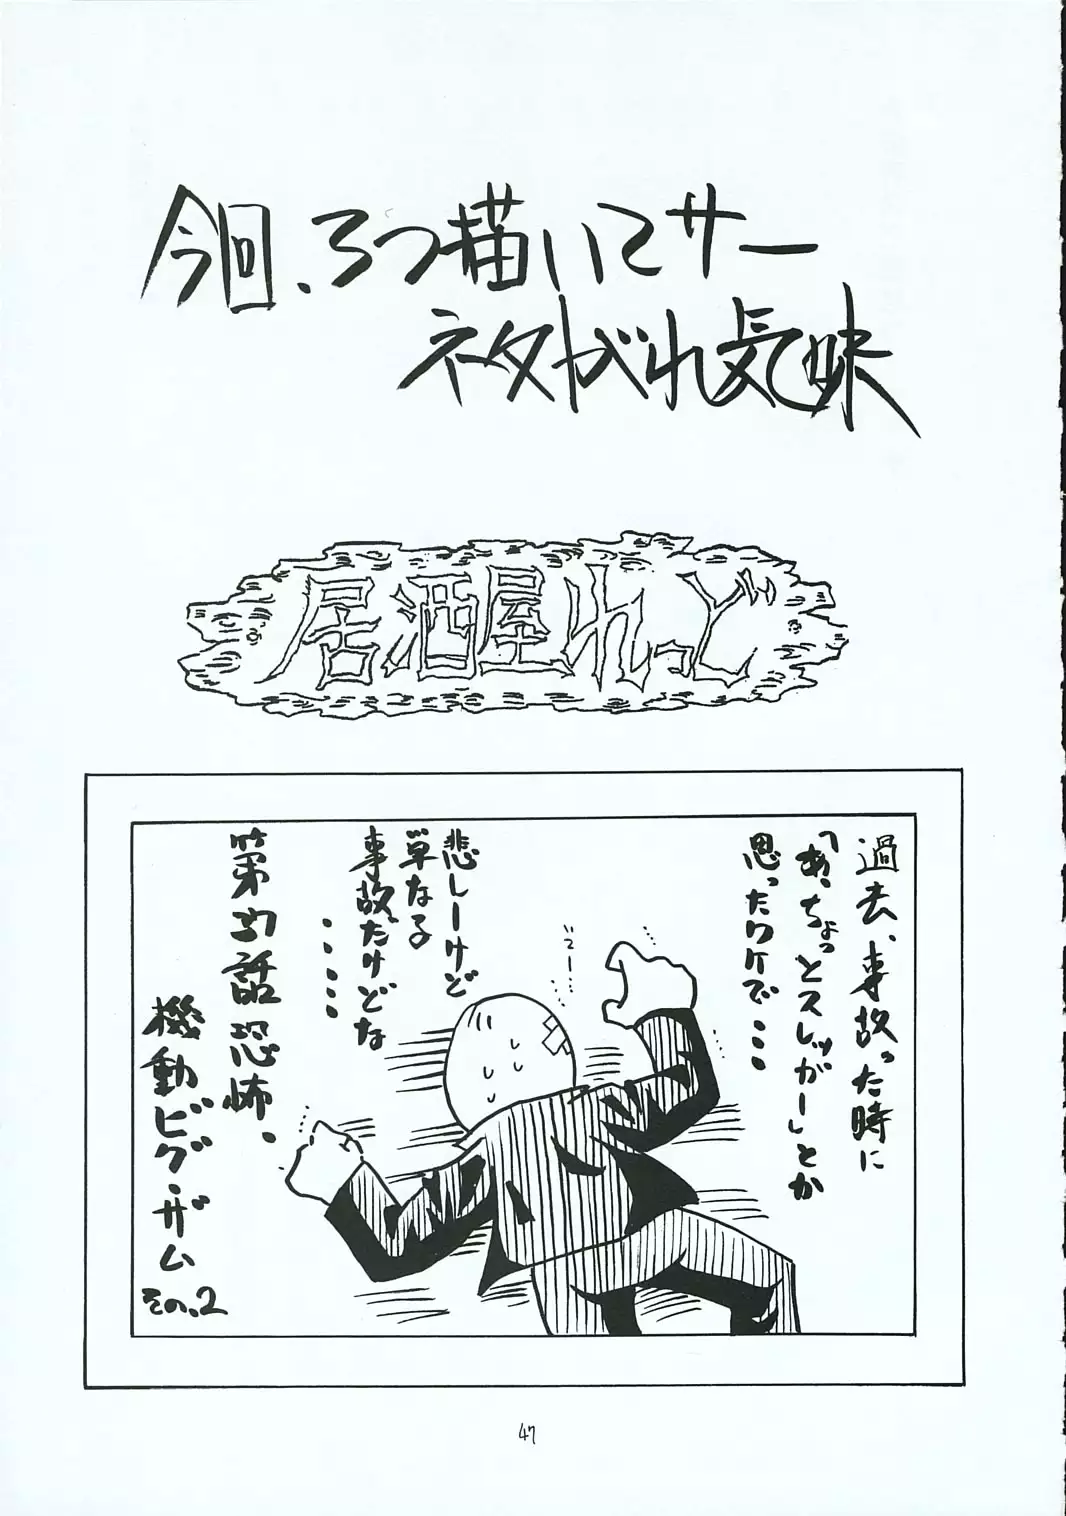 今回、3つ描いてサー
ネタがれ気味
居酒屋れっど
過去、事故った時に
「あ、ちょっとスレッガー」とか
思ったワケで・・・・
悲しーけど
単なる
事故だけどな
・・・・・
第37話恐怖、
機動ビグ・ザム
その、2
47